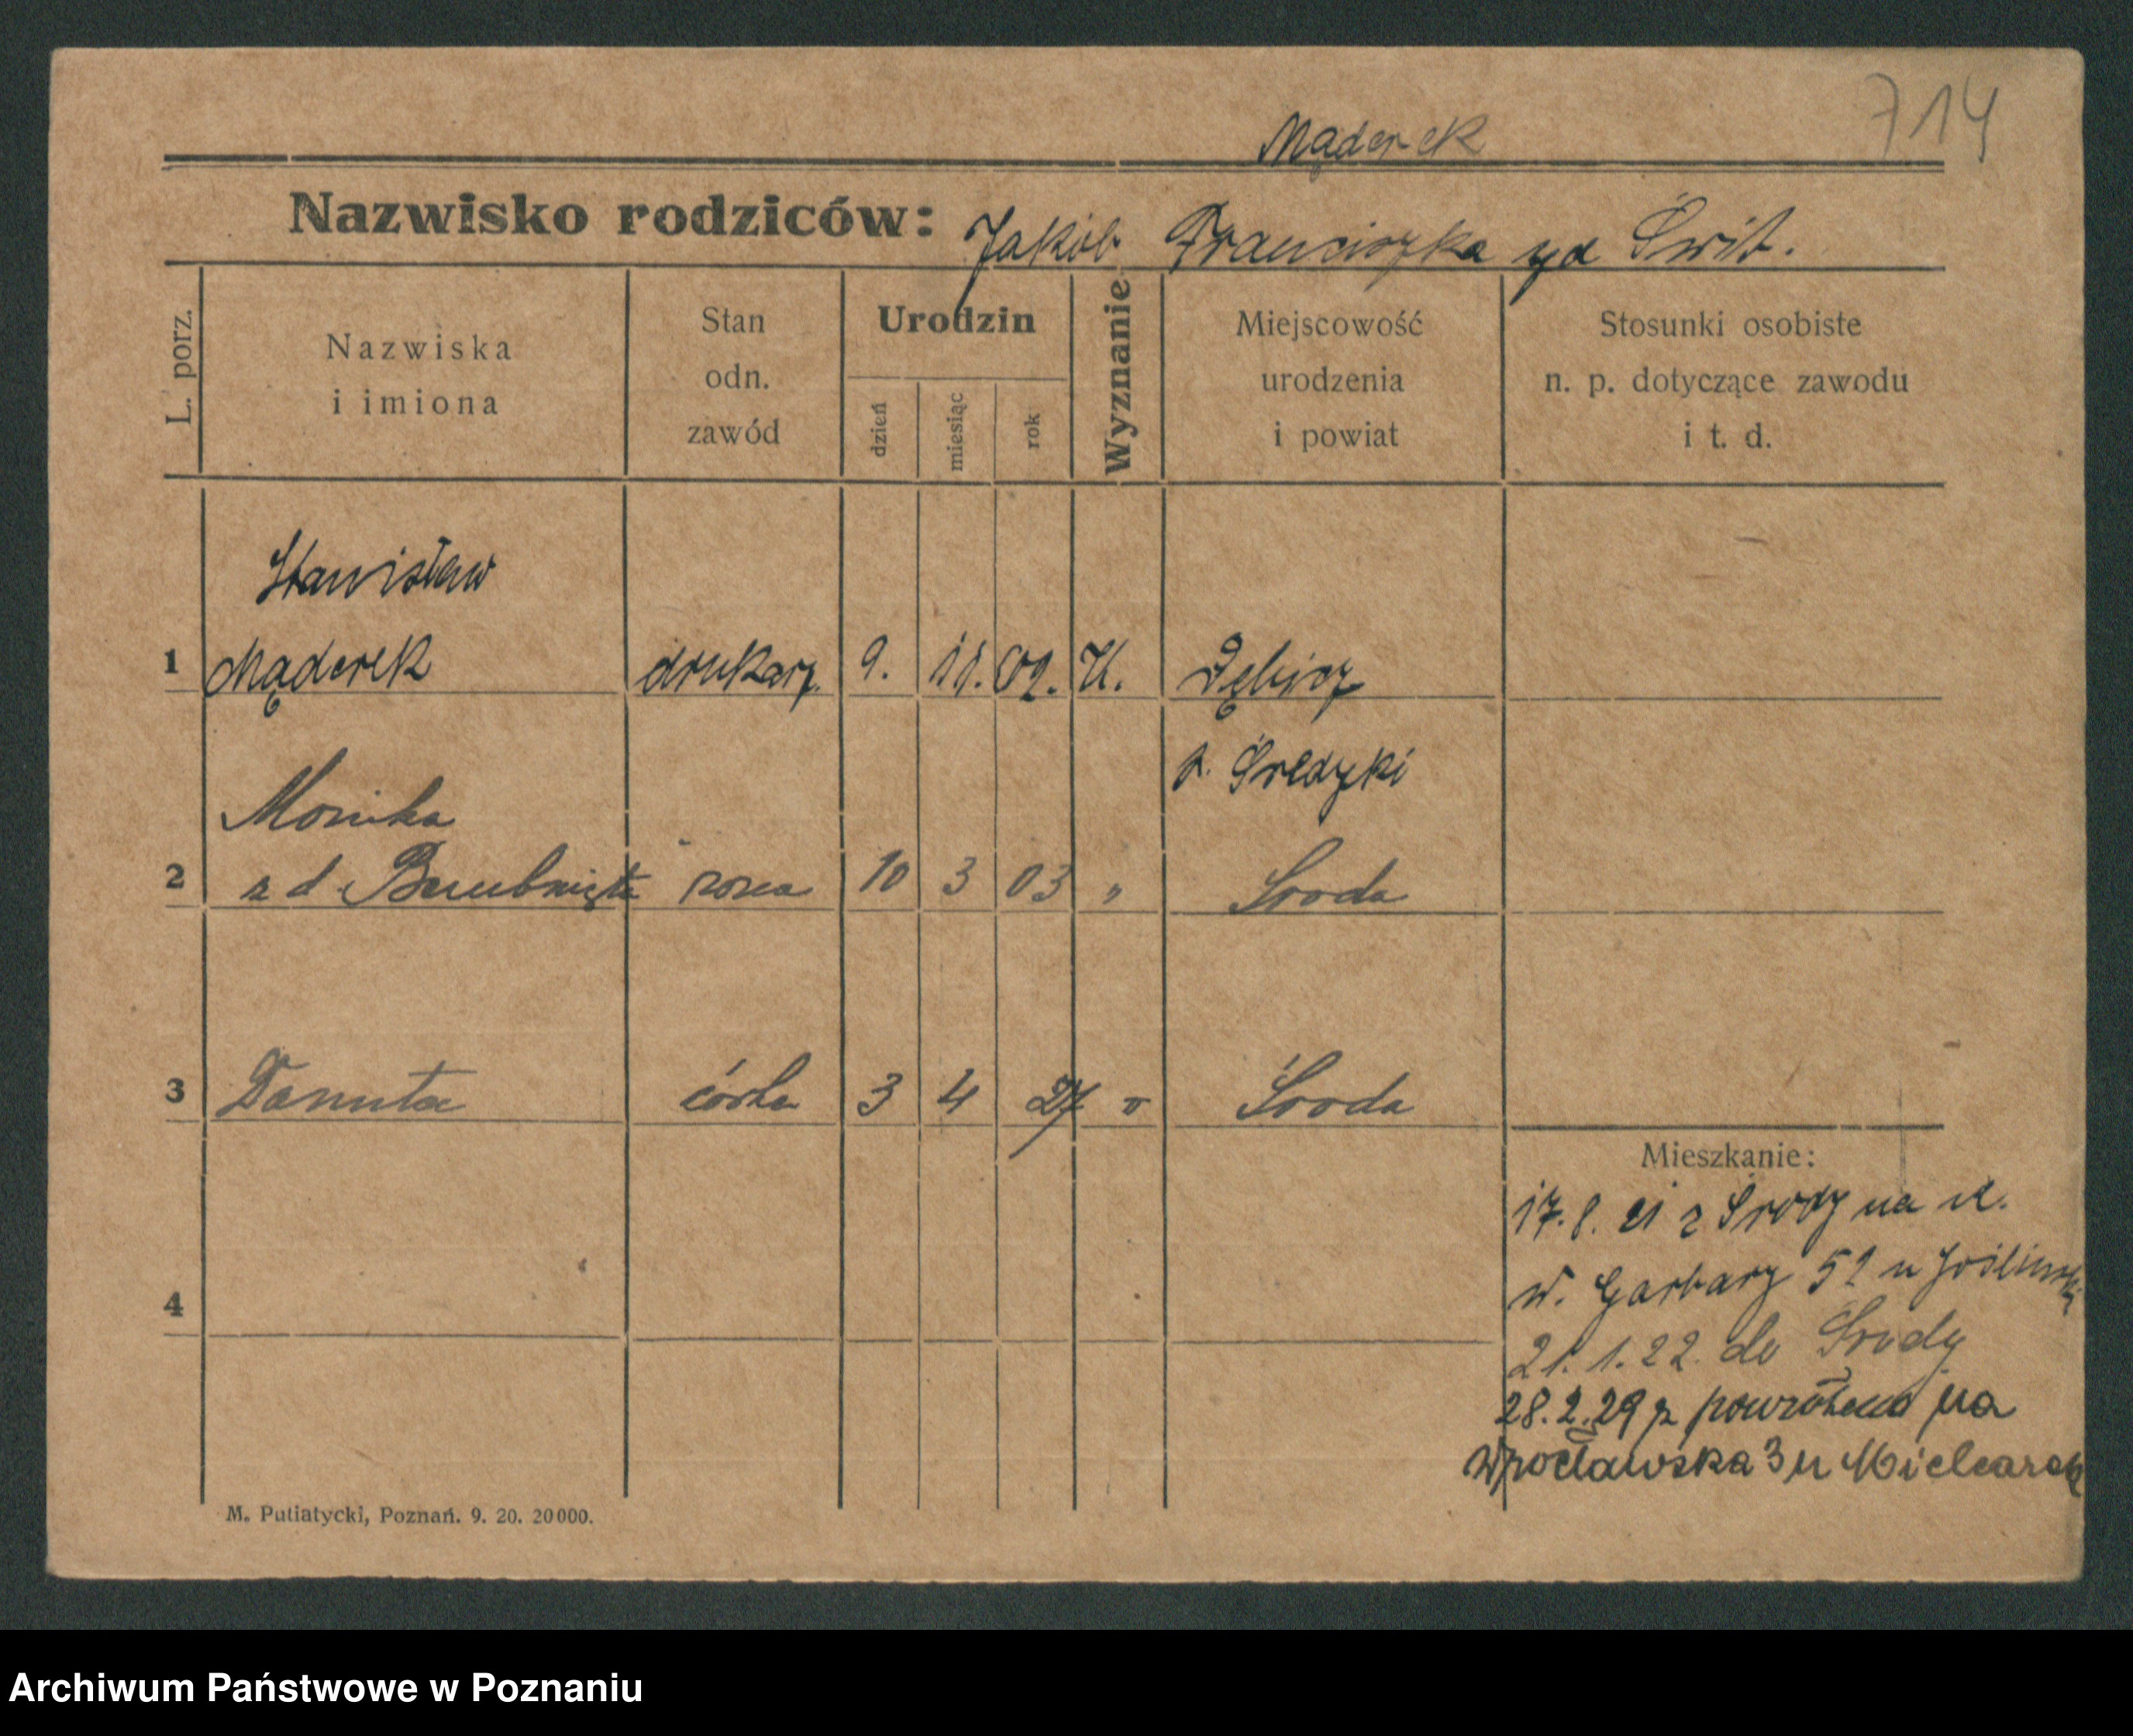 714
Mąderek
Nazwisko rodziców: Jakób Franciszka zd Świt.
L. porz.
Nazwiska
i imiona
Stan
odn.
zawód
Urodzin
dzień
miesiąc
rok
Wyznanie
Miejscowość
urodzenia
i powiat
Stosunki osobiste
n. p. dotyczące zawodu
i t. d.
Stanisław
1 Mąderek drukarz. 9. 11. 02. K. Dębicz
p. Średzki
Monika
2 z d żona 10 3 03 " Środa
3 Danuta córka 3 4 27 " Środa
4
Mieszkanie:
17.8.21 z Środy na
w. Garbary 52 u
21.1.22. do Środy
28.2.29 z powrotem na
Wrocławska 3 u Mielcarek
M. Putiatycki, Poznań. 9. 20. 20000.
Archiwum Państwowe w Poznaniu